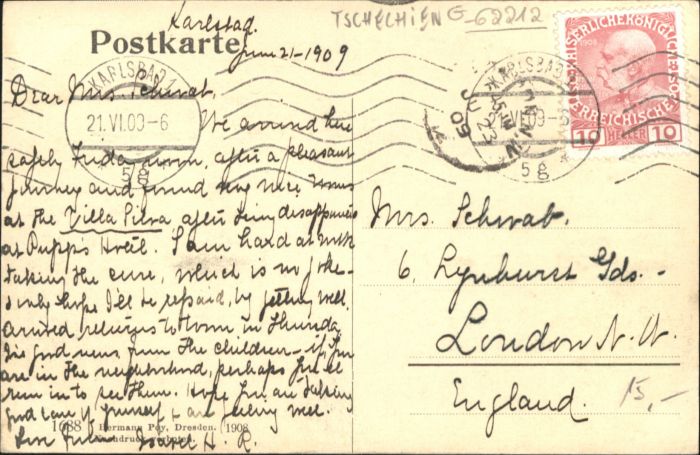 Karlsbad.
TSCHECHIEN G-62212
Postkarte
June 21-1909
KARLSBAD 1
21.VI.09-6
* 5g *
KARLSBAD 1
5g
KAISERLICHE KÖNIGLICHE ÖSTERREICHISCHE POST
1908
10 HELLER 10
Dear Mrs. Schwab.
We arrived here
safely Friday, after a pleasant
journey and found very nice rooms
at the Villa Silva after being disappointed
at Pupp's Hotel. I am hard at work
taking the cure, which is no joke -
I only hope I'll be repaid, by getting well.
returns to town in
good news from the children - if you
are in the neighborhood, perhaps you'll
run in to see them. Hope you are taking
good care of yourself & are feeling well.
H. R.
Mrs. Schwab.
6, Lynhurst Gds. -
London N. W.
England.
15,-
1088 Hermann Poy, Dresden. 1908
Nachdruck verboten.